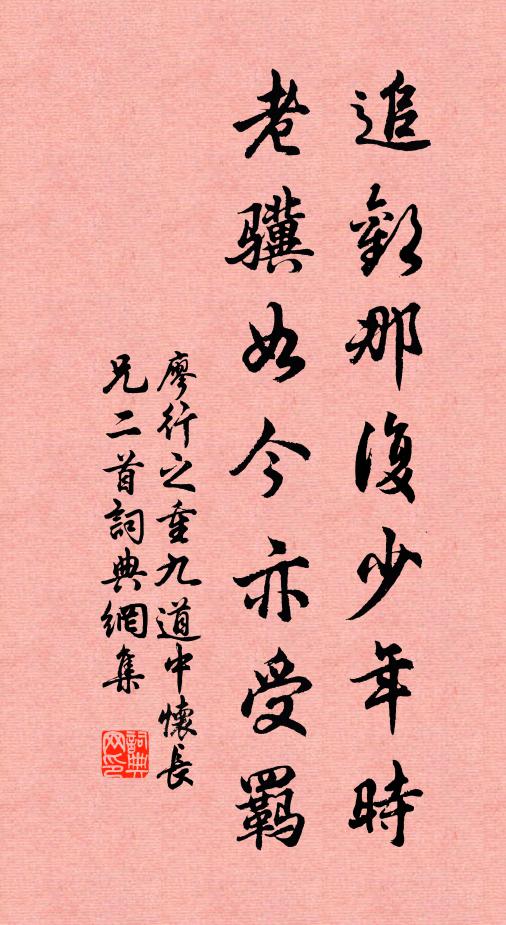 追歡那復少年時
老驥如今亦受羈
廖行之重九道中懷長
兄二首詞典網集
詞典
网印